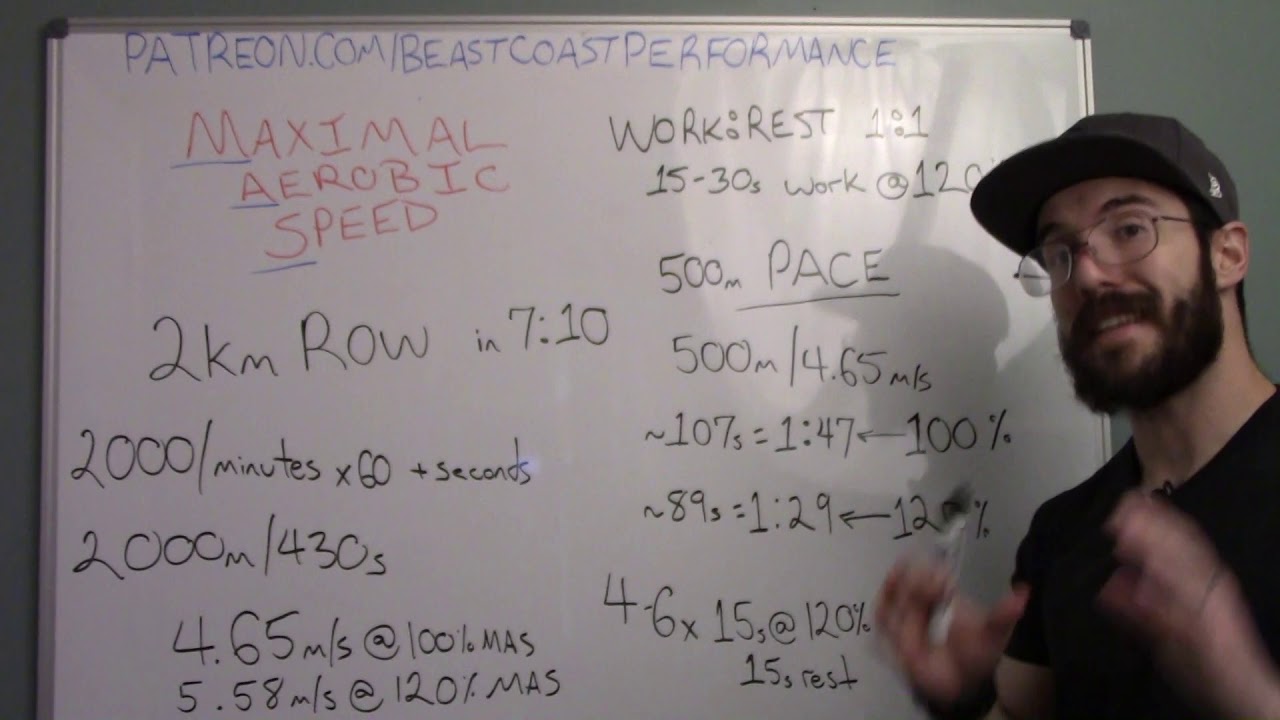 PATREON.COM/BEASTCOASTPERFORMANCE
MAXIMAL
AEROBIC
SPEED
2km ROW in 7:10
2000/minutes x60 + seconds
2000m/430s
4.65m/s @ 100% MAS
5.58m/s @ 120% MAS
WORK:REST 1:1
15-30s work @ 120
500m PACE
500m/4.65m/s
~107s = 1:47 ← 100%
~89s = 1:29 ← 120%
4-6x 15s @ 120%
15s rest